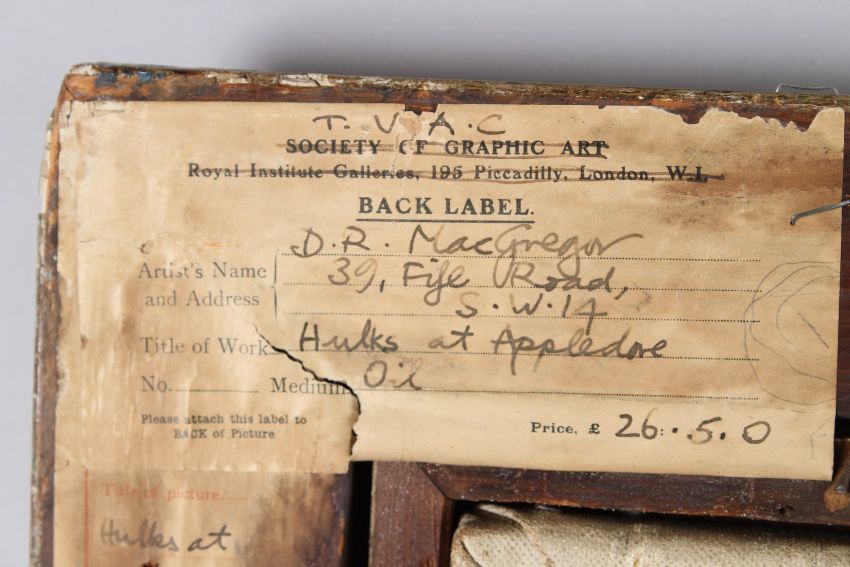 T. V. A. C
SOCIETY OF GRAPHIC ART
Royal Institute Galleries, 195 Piccadilly, London, W.1.
BACK LABEL.
Artist's Name and Address
D. R. MacGregor
39, Fife Road,
S. W. 14
Title of Work Hulks at Appledore
No. Medium Oil
Please attach this label to
BACK of Picture
Price, £ 26 : . 5. 0
Title of picture
Hulks at